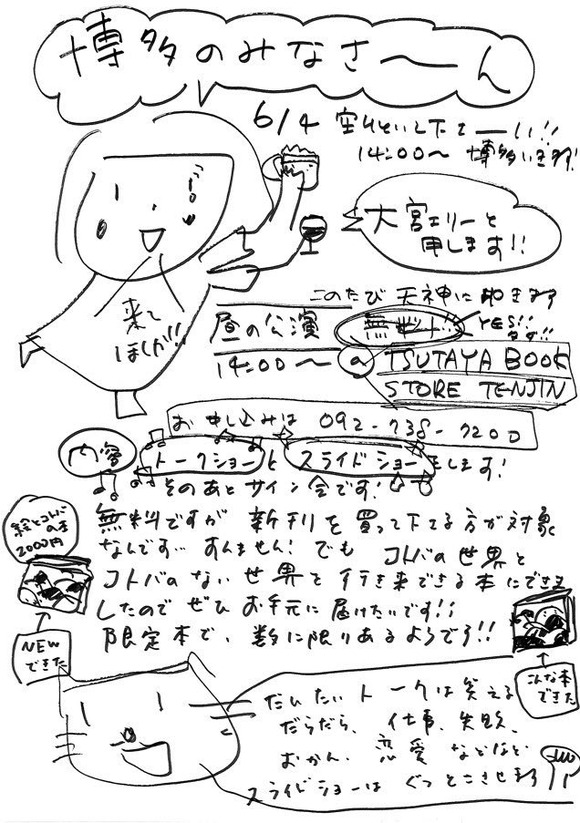 博多のみなさ〜ん
6/4 空けといて下さーーい!!
14:00〜 博多いきます!
大宮エリーと
申します!!
来て
ほしが!!
このたび 天神に ゆきます
昼の公演 無料!! YES!!
14:00〜 @ TSUTAYA BOOK
STORE TENJIN
お申し込みは 092-738-7200
内容 トークショーと スライドショーをします!
そのあと サイン会です!
絵とコトバ
の本
2000円
無料ですが 新刊を 買って下さる方が対象
なんです… すんません! でも コトバの世界と
コトバのない世界を 行き来できる本にできま
したので ぜひ お手元に届けたいです!!
限定本で、数に限りあるようです!!
NEW
できた
こんな本
できた
だいたい トークは笑える
だらだら、仕事、失敗、
おかん、恋愛 などなど
スライドショーは ぐっとこさせます